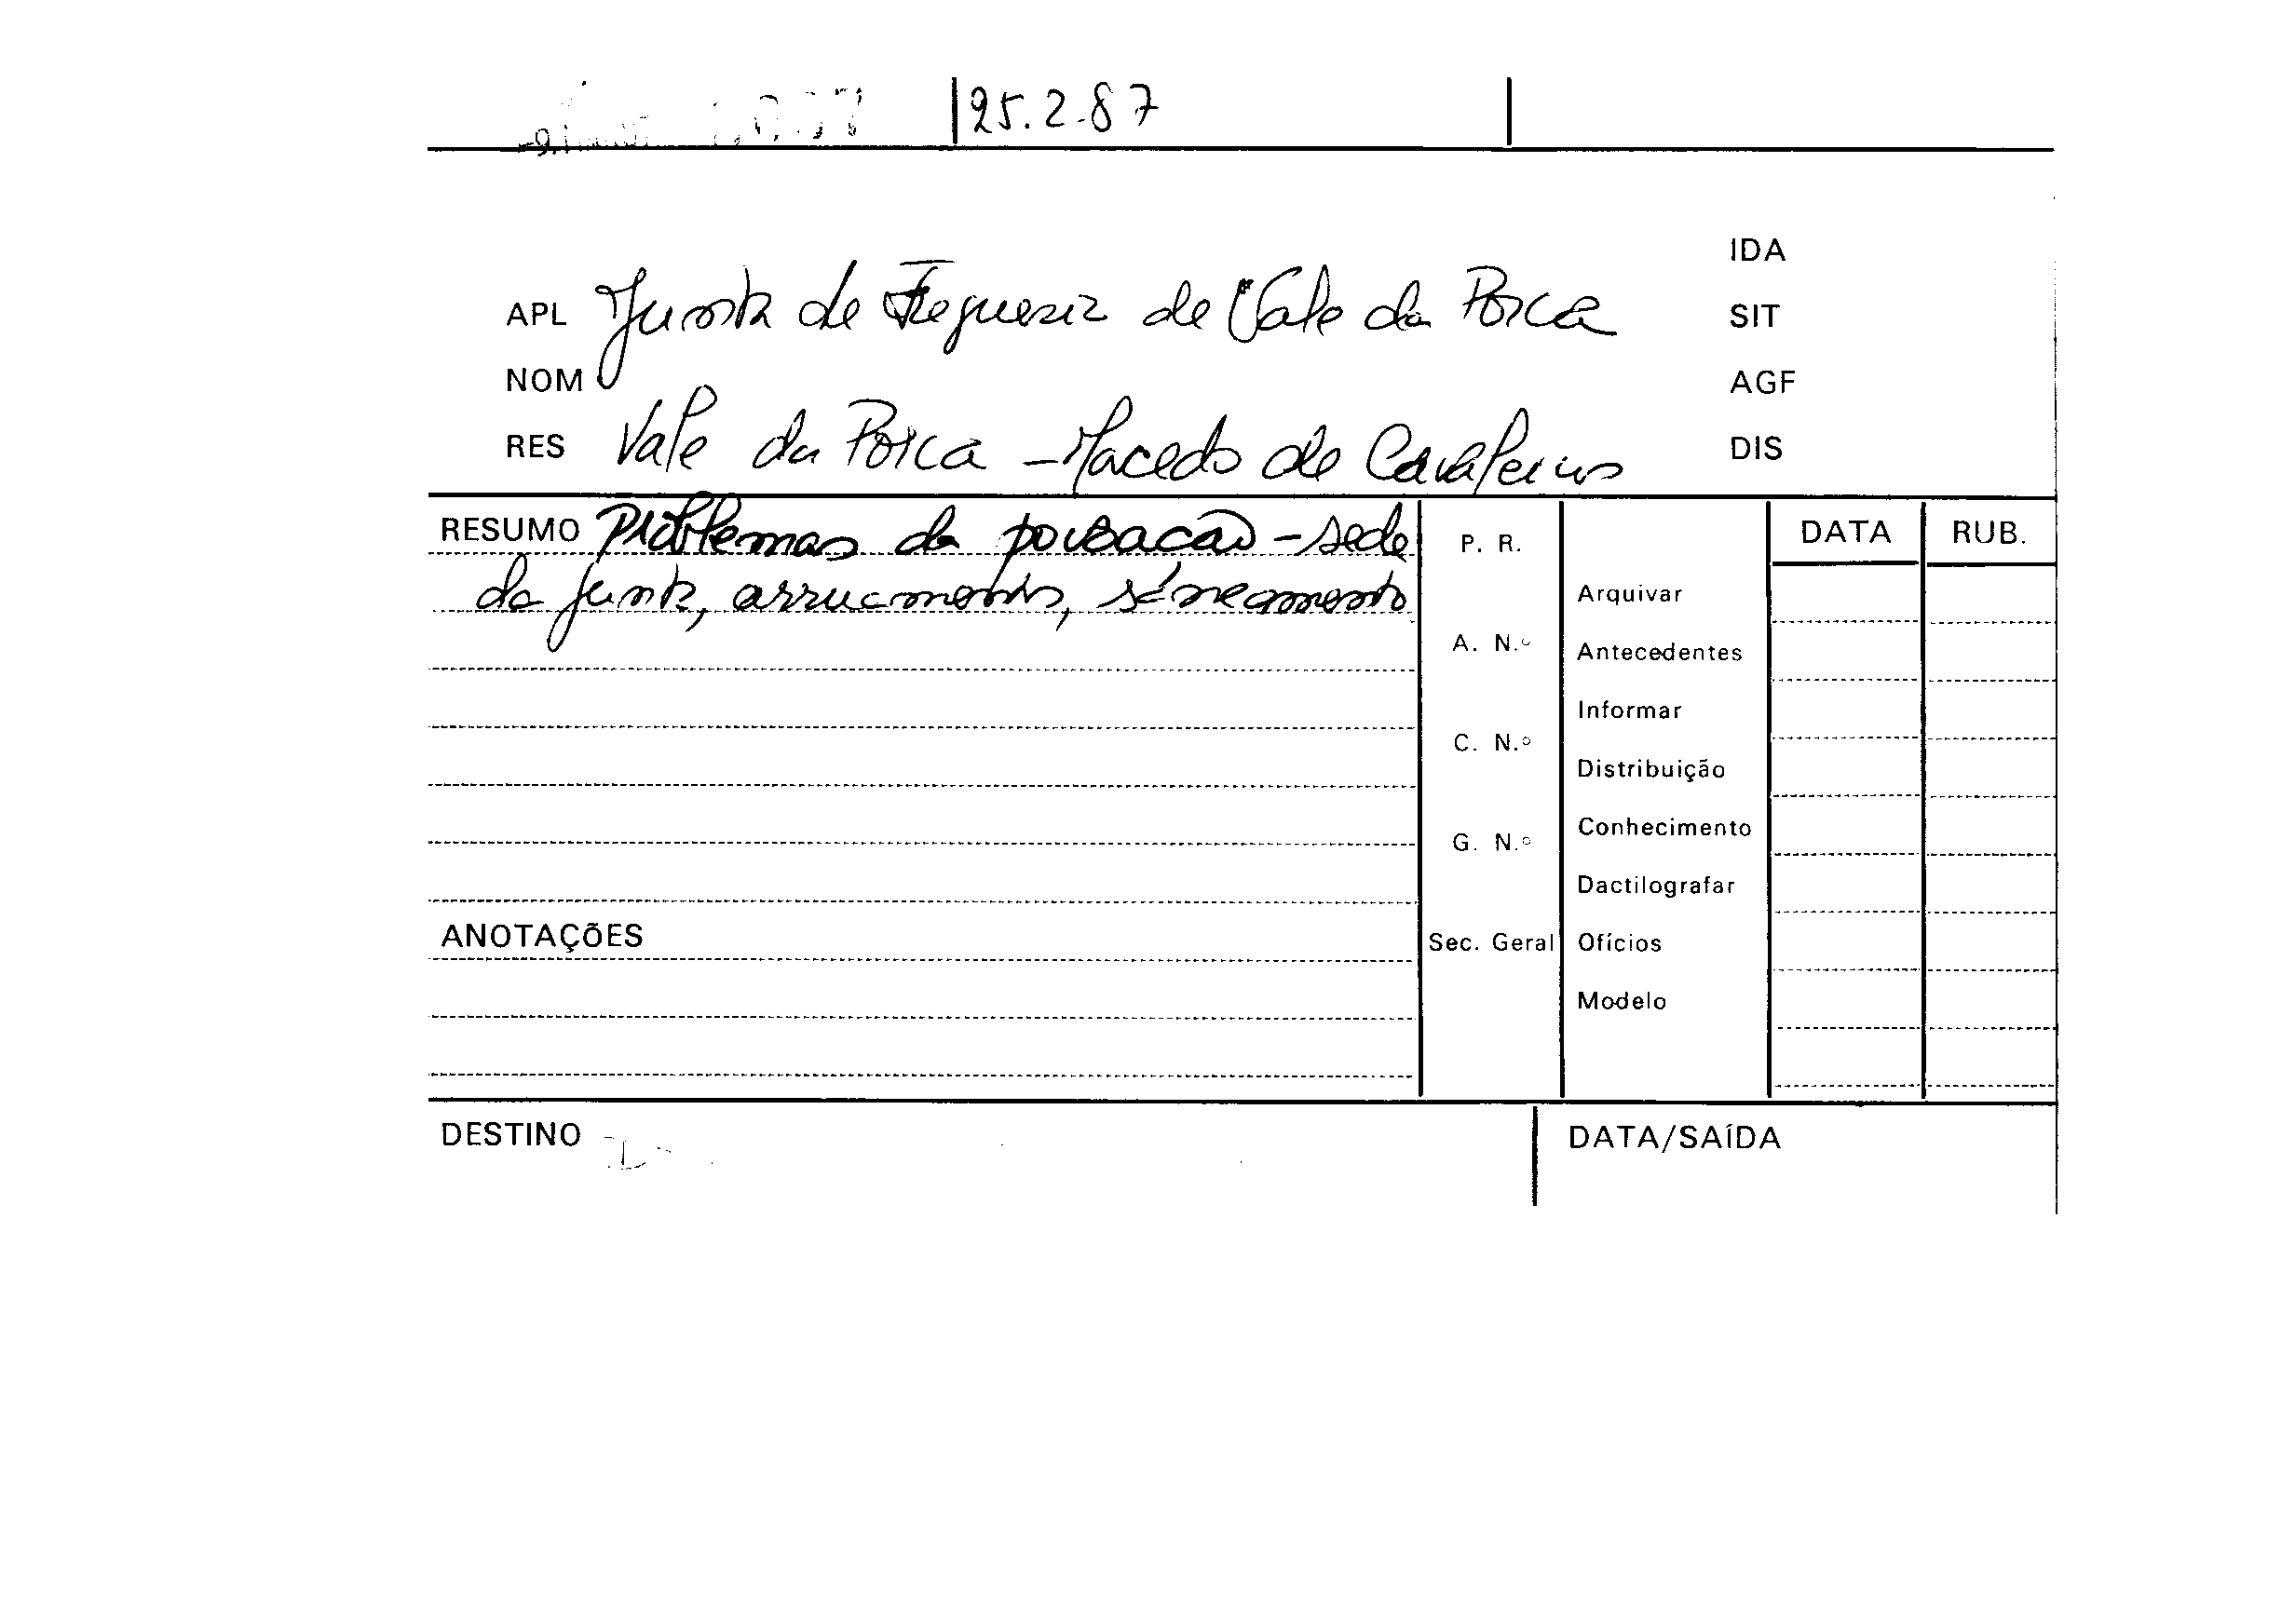 25.2.87
IDA
APL Junta de Freguesia de Vale da Porca SIT
NOM AGF
RES Vale da Porca - Macedo de Cavaleiros DIS
RESUMO Problemas da povoação - sede P. R. DATA RUB.
da junta, arruamentos, saneamento Arquivar
A. N.º Antecedentes
Informar
C. N.º
Distribuição
Conhecimento
G. N.º
Dactilografar
ANOTAÇÕES Sec. Geral Ofícios
Modelo
DESTINO DATA/SAÍDA